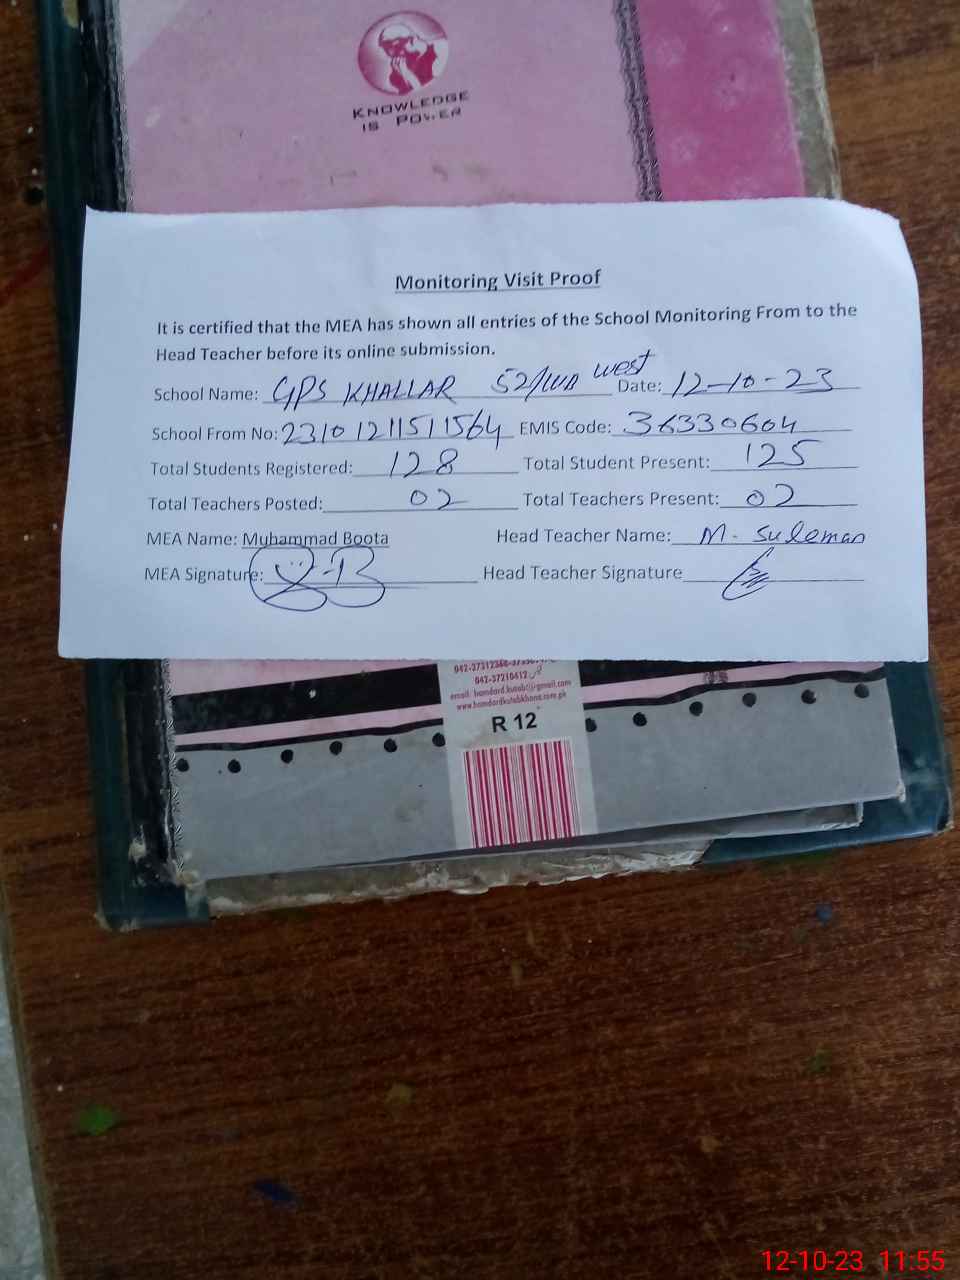 KNOWLEDGE
IS POWER
Monitoring Visit Proof
It is certified that the MEA has shown all entries of the School Monitoring From to the
Head Teacher before its online submission.
School Name: GPS KHALLAR 52/WB west Date: 12-10-23
School From No: 23101211511564 EMIS Code: 36330604
Total Students Registered: 128 Total Student Present: 125
Total Teachers Posted: 02 Total Teachers Present: 02
MEA Name: Muhammad Boota Head Teacher Name: M. Suleman
MEA Signature: Head Teacher Signature
042-37210412
email: hamdard.kutab@gmail.com
www.hamdardkutabkhana.com.pk
R 12
12-10-23 11:55